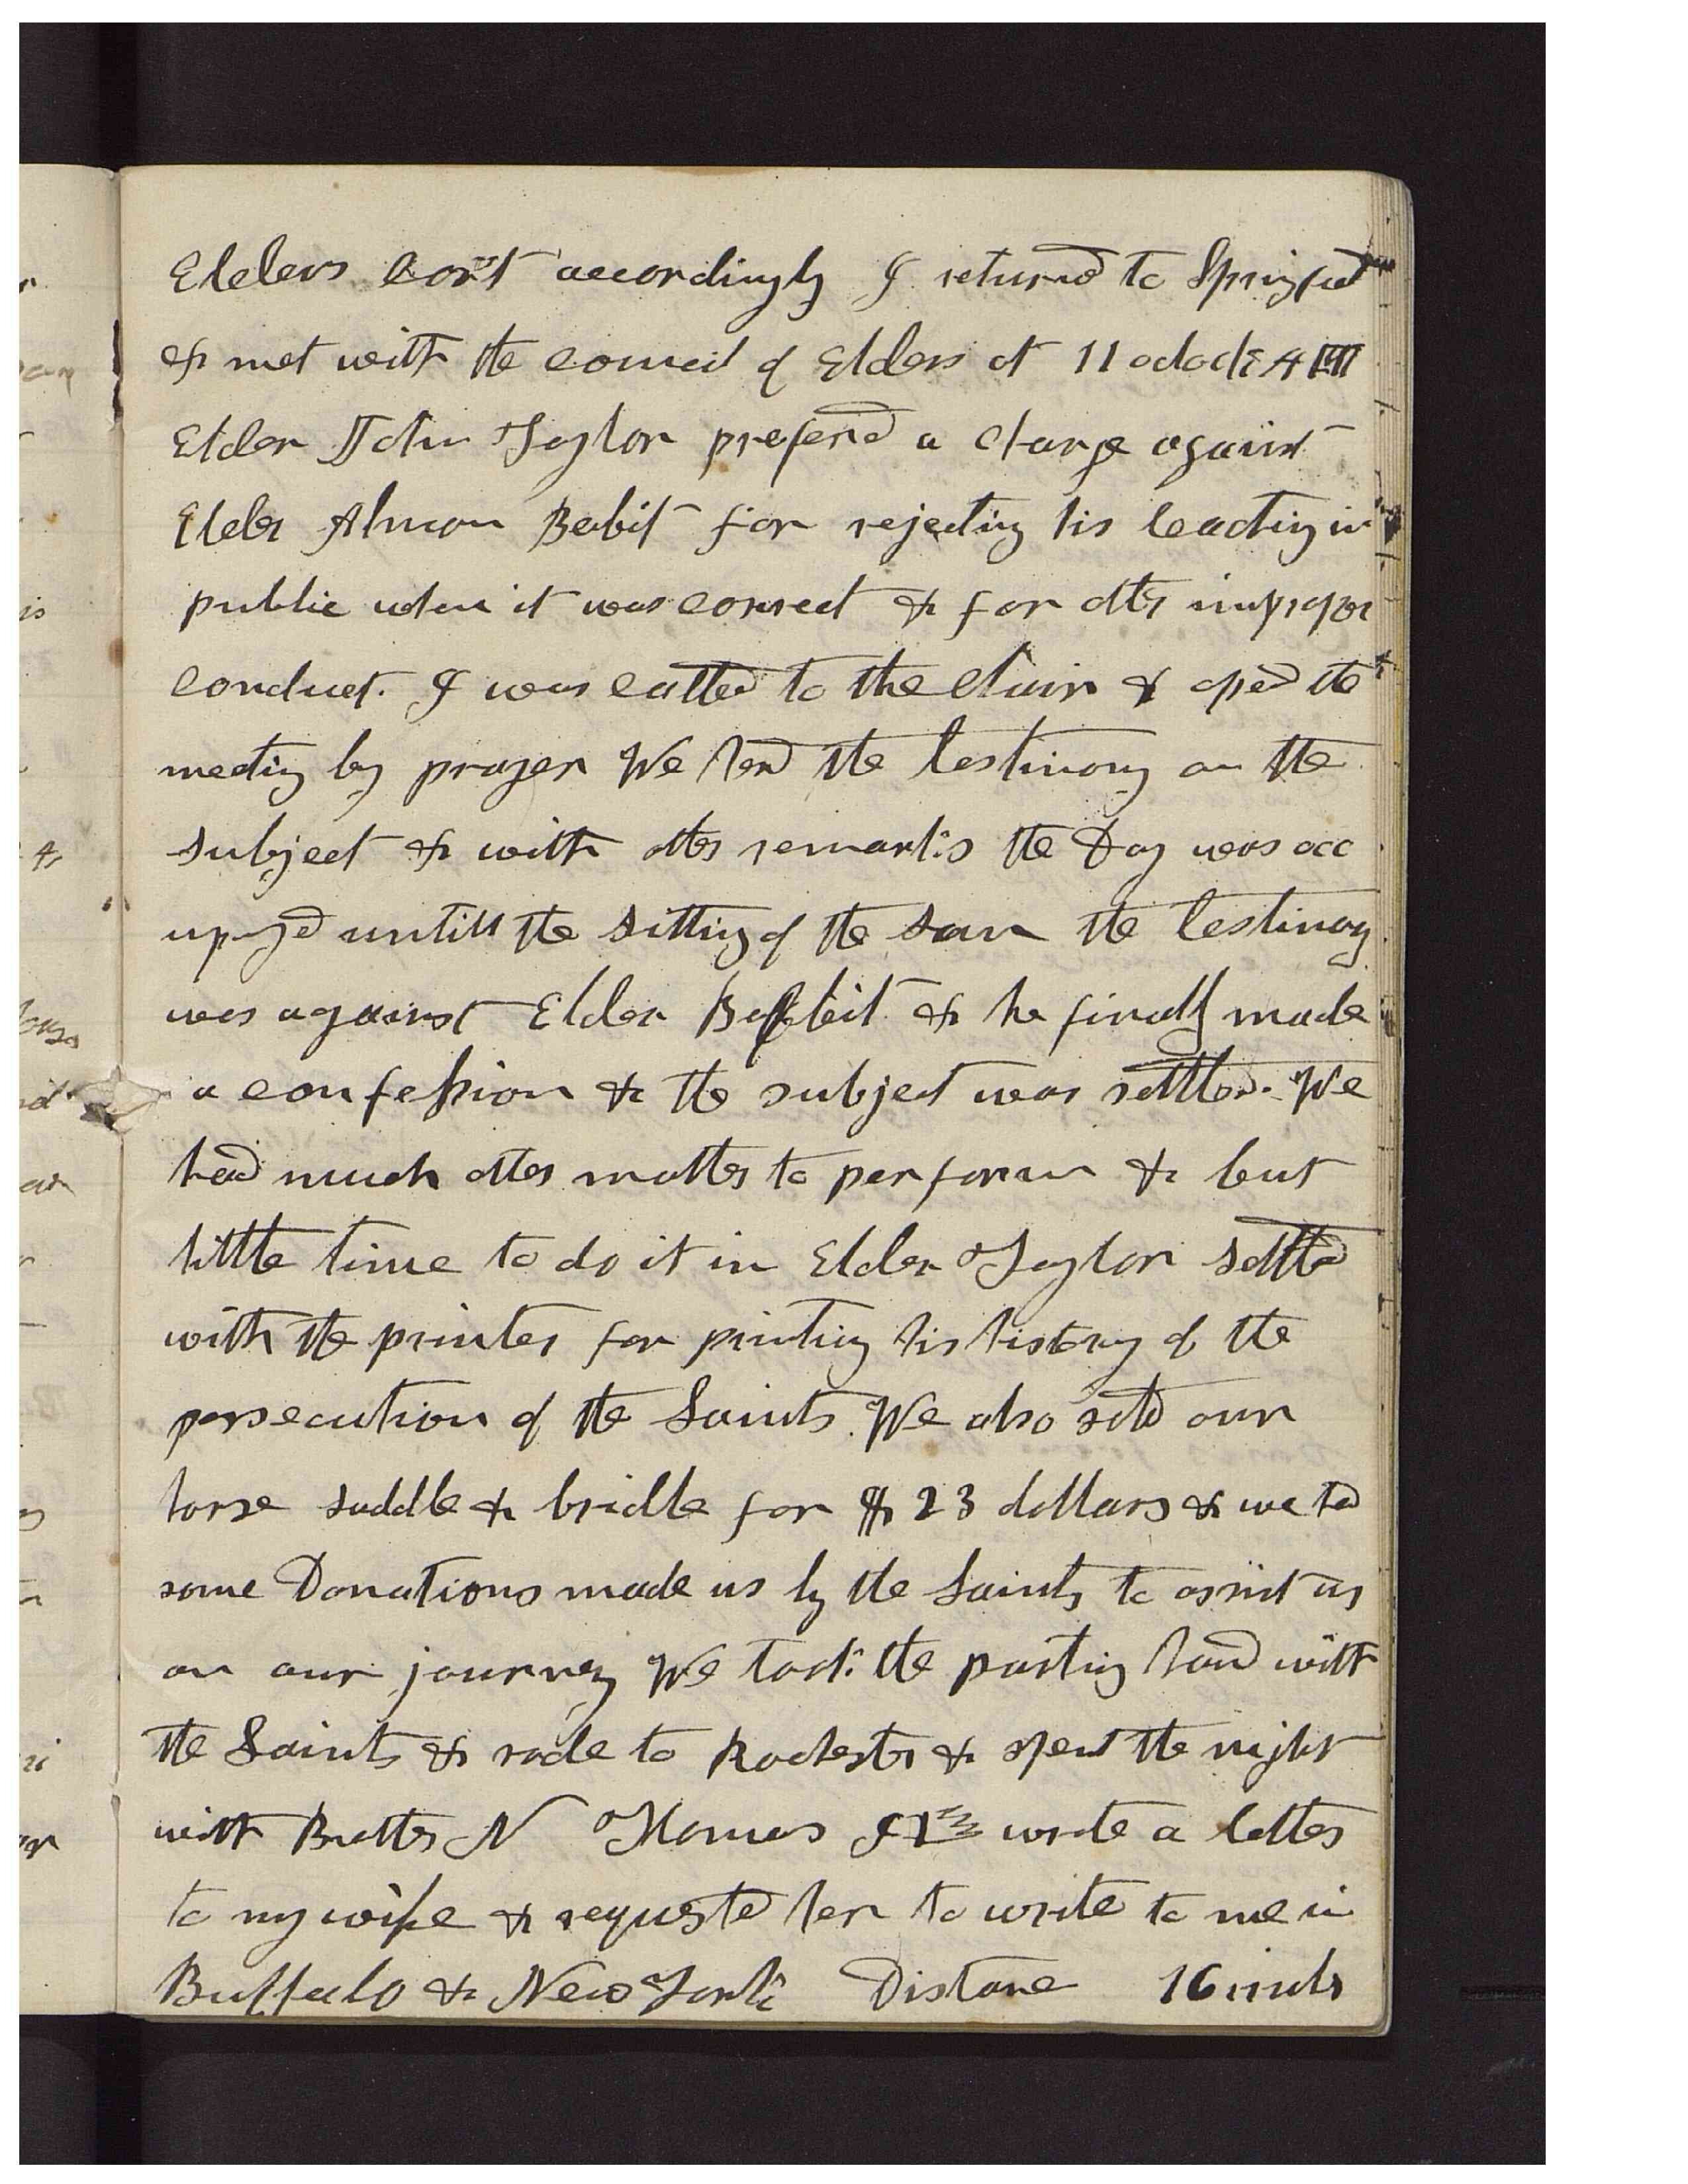 Elders Cort accordingly I returned to Springfield
& met with the council of Elders at 11 oclock AM
Elder John Taylor prefered a charge against
Elder Almon Babit for rejecting his teaching in
public when it was correct & for other improper
conduct. I was called to the chair & oped the
meeting by prayer We herd the testimony on the
subject & with other remarks the Day was occ
upyed untill the sitting of the sun the testimony
was against Elder Babbit & he finally made
a confession & the subject was settled. We
had much other matter to perform & but
little time to do it in Elder Taylor settled
with the printer for printing his history of the
persecution of the Saints. We also sold our
horse saddle & bridle for $23 dollars & we had
some Donations made us by the Saints to assist us
on our journey We took the parting hand with
the Saints & rode to Rochester & spent the night
with Brother N Thomas I wrote a letter
to my wife & requested her to write to me in
Buffalo & New York Distance 16 miles